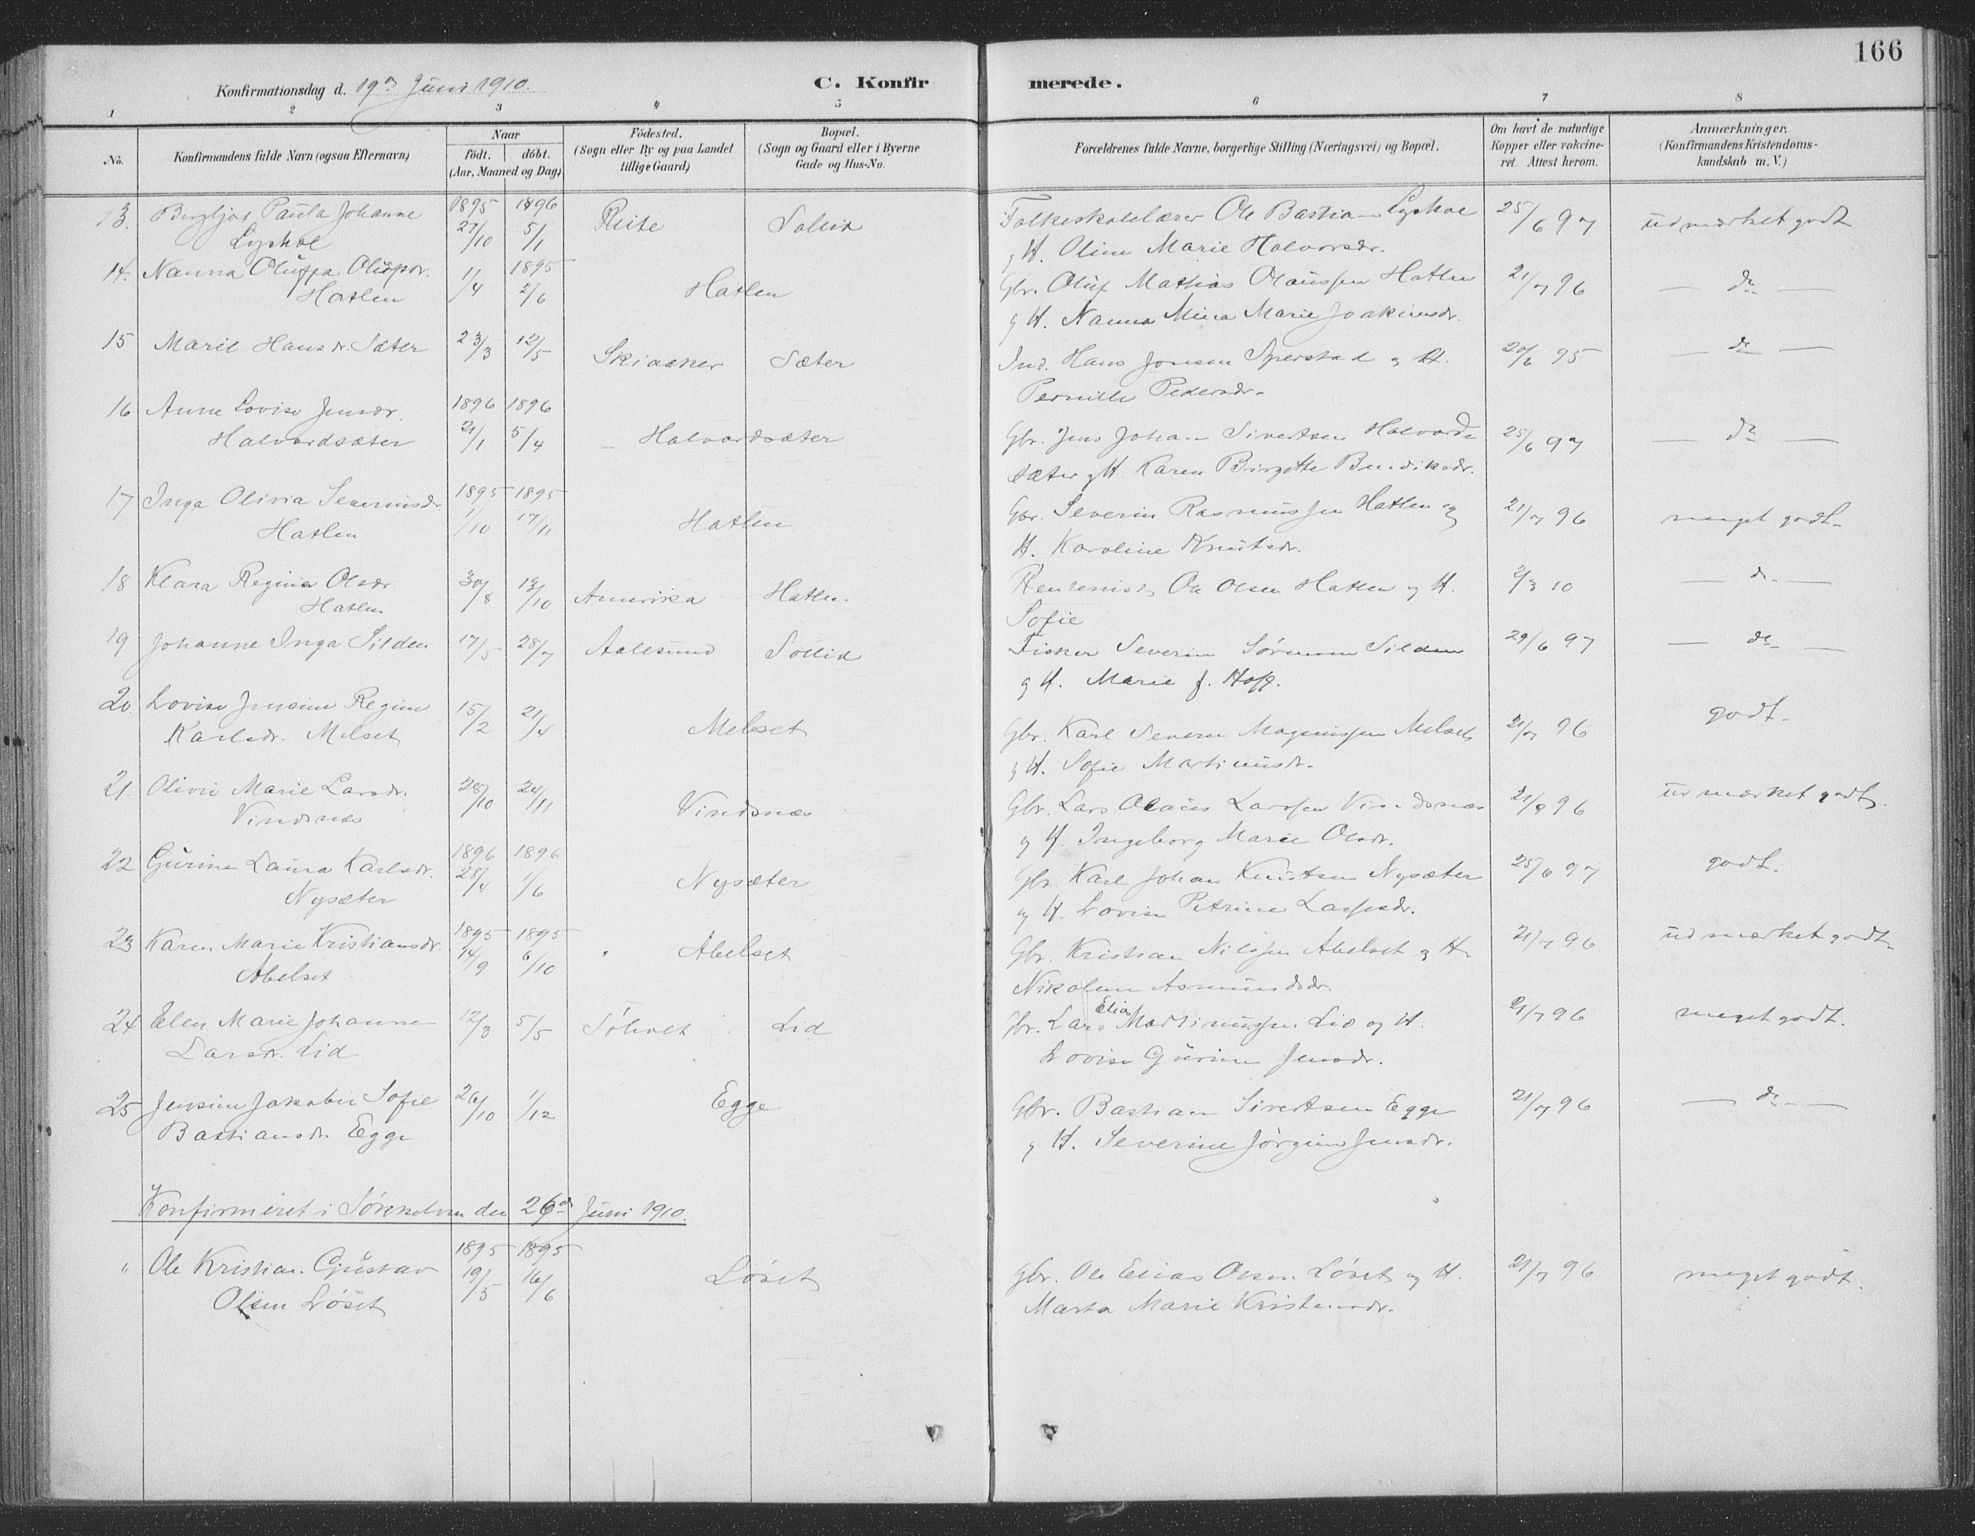 166
Konfirmationsdag d. 19de Juni 1910.
C. Konfirmerede.
1 2 3 4 5 6 7 8
No. Konfirmandens fulde Navn (ogsaa Efternavn) Naar födt. döbt. (Aar, Maaned og Dag) Födested. (Sogn eller By og paa Landet tillige Gaard) Bopæl. (Sogn og Gaard eller i Byerne Gade og Hus-No. Forældrenes fulde Navne, borgerlige Stilling (Næringsvei) og Bopæl. Om havt de naturlige Kopper eller vakcineret. Attest herom. Anmærkninger. (Konfirmandens Kristendomskundskab m. V.)
13. Bergljot Paula Johanne 1895 1896 Folkeskolelærer Ole Bastian Lyshol 25/6 97 udmærket godt
Lyshol 27/10 5/1 Reite Sollid g H. Oline Marie Halvorsdr.
14. Nanna Oluffa Olufsdr. 1/4 1895 2/6 Hatlen Gbr. Oluf Mathias Olaussen Hatlen 21/7 96 — do —
Hatlen g H. Nanna Mina Marie Joakimsdr.
15 Marie Hansdr. Sæter 23/3 12/5 Skiaaker Sæter Ind. Hans Jonsen Sperstad og H. 20/6 95 — do —
Pernille Pedersdr.
16 Anne Lovise Jensdr. 1896 1896 Gbr. Jens Johan Sivertsen Halvards 25/6 97 — do —
Halvardsæter 21/1 5/4 Halvardsæter sæter g H. Karen Birgitte Bendiksdr.
17 Inga Olivia Severinsdr. 1895 1895 Gbr. Severin Rasmussen Hatlen og 21/7 96 meget godt
Hatlen 1/10 17/11 Hatlen H. Karoline Knutsdr.
18 Klara Regine Olsdr. 30/8 13/10 Amerika Hatlen. Rentenist Ole Olsen Hatlen og H. 2/3 10 — do —
Hatlen Sofie
19 Johanne Inga Silden 17/5 28/7 Aalesund Sollid Fisker Severin Sørensen Silden 29/6 97 — do —
g H. Marie f. Hoff.
20. Lovise Jensine Regine 15/2 21/4 Melset Gbr. Karl Severin Magnussen Melset 21/7 96 godt.
Karlsdr. Melset g H. Sofie Martinusdr.
21. Olivie Marie Larsdr. 28/10 24/11 Vindsnæs Gbr. Lars Olaus Larssen Vindsnæs 21/7 96 udmærket godt.
Vindsnæs g H. Ingeborg Marie Olsdr.
22 Gurine Laura Karlsdr. 1896 1896 Gbr. Karl Johan Knutsen Nysæter 25/6 97 godt.
Nysæter 28/4 1/6 Nysæter og H. Lovise Petrine Larsdr.
23 Karen Marie Kristiansdr. 1895 1895 Gbr. Kristian Nilssen Abelset og H. 21/7 96 udmærket godt
Abelset 14/9 6/10 Abelset Nikoline Asmundsdr.
24 Elen Marie Johanne 12/3 5/5 Søholt Lid Gbr. Lars Elias Martinussen Lid og H. 21/7 96 meget godt.
Larsdr. Lid Lovise Gurine Jensdr.
25 Jensine Jakobie Sofie 26/10 1/12 Egge Gbr. Bastian Sivertsen Egge 21/7 96 — do —
Bastiansdr. Egge g H. Severine Jørgine Jensdr.
Konfirmeret i Sørkedven den 26de Juni 1910.
" Ole Kristian Gustav 1895 1895 Gbr. Ole Elias Olsen Løset og H. 21/7 96 meget godt.
Olsen Løset 19/5 16/6 Løset Marta Marie Kristensdr.